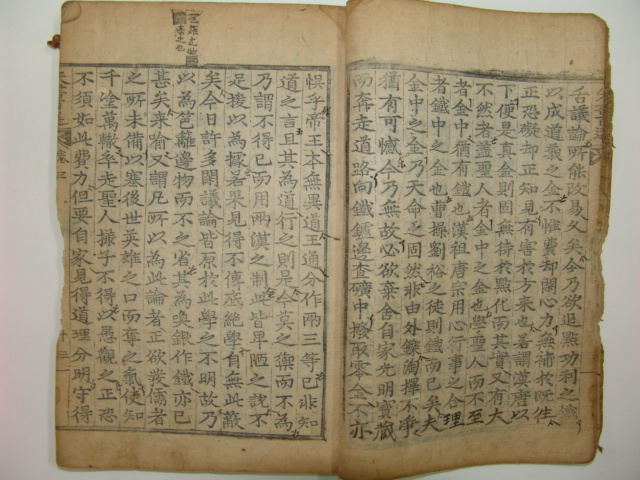 舌議論所能改易久矣今乃欲追點功利之鐵
以成道義之金不惟費却閑心力無補於旣往
正恐礙却正知見有害於方來也若謂漢唐以
下便是真金則固無待於點化而其實又有大
不然者蓋聖人者金中之金也學聖人而不至
者金中猶有鐵也漢祖唐宗用心行事之合理
者鐵中之金也曹操劉裕之徒則鐵而已矣夫
金中之金乃天命之固然非由外鑠淘擇不淨
猶有可憾今乃無故必欲棄舍自家光明寶藏
而奔走道路向鐵鑪邊查礦中撥取零金不亦
悞乎帝王本無異道王通分作兩三等已非知
道之言且其為道行之則是今莫之禦而不為
乃謂不得已而用兩漢之制此皆卑陋之說不
足援以為據若果見得不傳底絶學自無此蔽
矣今日許多閑議論皆原於此學之不明故乃
以為笆籬邊物而不之省其為喚銀作鐵亦已
甚矣來喩又謂凡所以為此論者正欲發儒者
之所未備以塞後世英雄之口而奪之氣使知
千塗萬轍卒走聖人㨾子不得以愚觀之正恐
不須如此費力但要自家見得道理分明守得